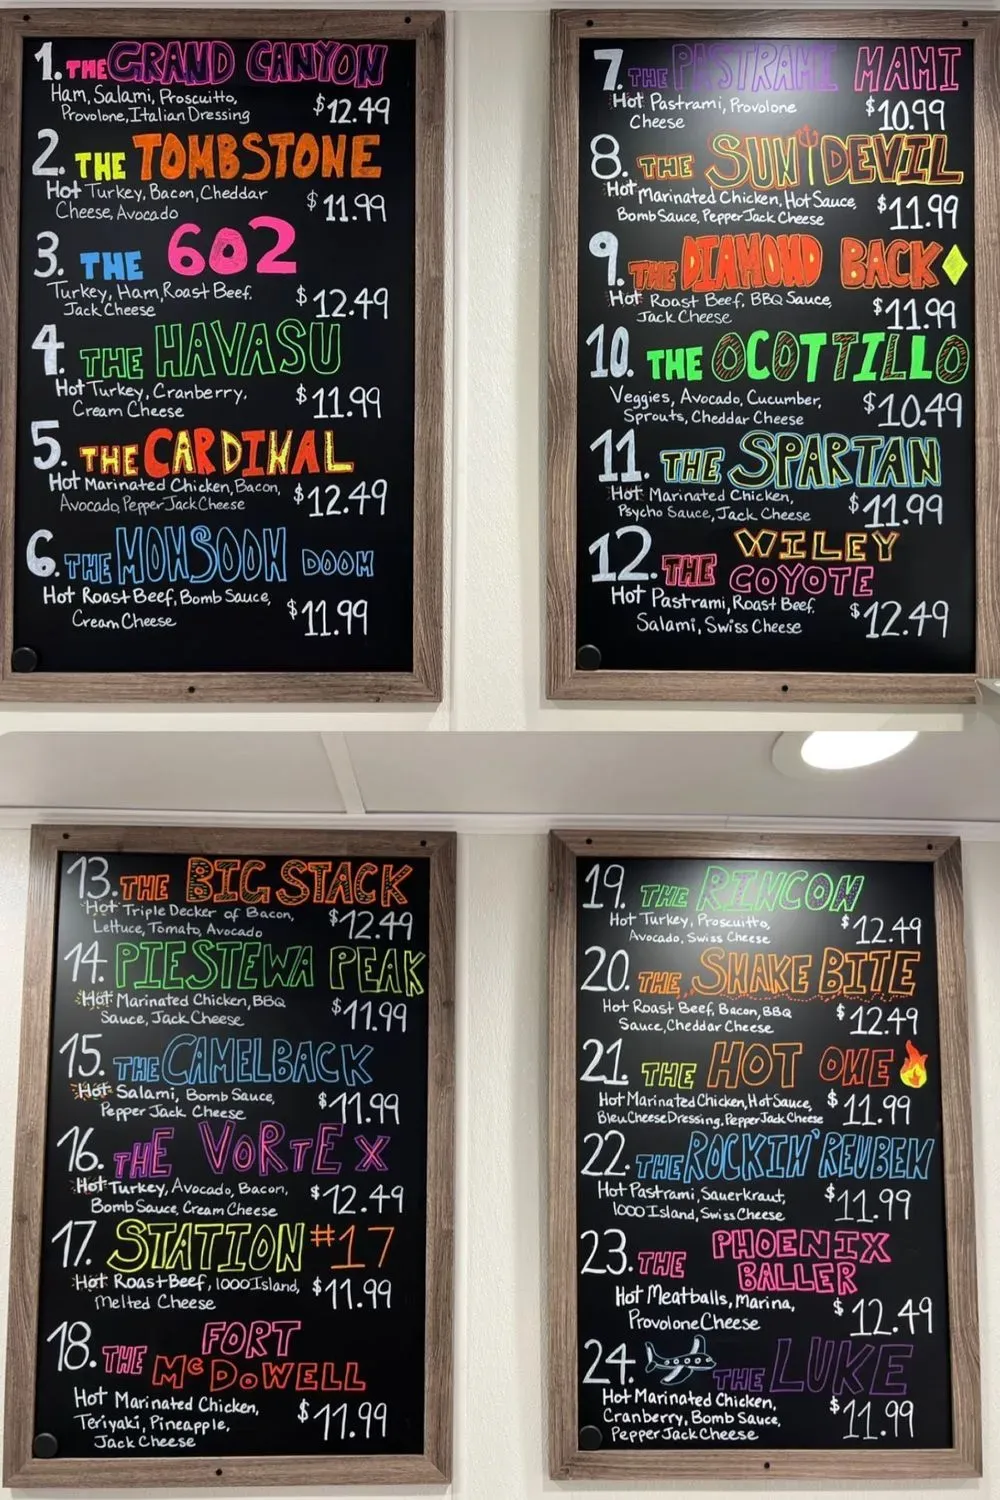 1. THE GRAND CANYON
Ham, Salami, Proscuitto,
Provolone, Italian Dressing
$12.49
2. THE TOMBSTONE
Hot Turkey, Bacon, Cheddar
Cheese, Avocado
$11.99
3. THE 602
Turkey, Ham, Roast Beef,
Jack Cheese
$12.49
4. THE HAVASU
Hot Turkey, Cranberry,
Cream Cheese
$11.99
5. THE CARDINAL
Hot Marinated Chicken, Bacon,
Avocado, Pepper Jack Cheese
$12.49
6. THE MONSOON DOOM
Hot Roast Beef, Bomb Sauce,
Cream Cheese
$11.99
7. THE PASTRAMI MAMI
Hot Pastrami, Provolone
Cheese
$10.99
8. THE SUN DEVIL
Hot Marinated Chicken, Hot Sauce,
Bomb Sauce, Pepper Jack Cheese
$11.99
9. THE DIAMOND BACK
Hot Roast Beef, BBQ Sauce,
Jack Cheese
$11.99
10. THE OCOTTILLO
Veggies, Avocado, Cucumber,
Sprouts, Cheddar Cheese
$10.49
11. THE SPARTAN
Hot Marinated Chicken,
Psycho Sauce, Jack Cheese
$11.99
12. THE WILEY
COYOTE
Hot Pastrami, Roast Beef,
Salami, Swiss Cheese
$12.49
13. THE BIG STACK
Hot Triple Decker of Bacon,
Lettuce, Tomato, Avocado
$12.49
14. PIESTEWA PEAK
Hot Marinated Chicken, BBQ
Sauce, Jack Cheese
$11.99
15. THE CAMELBACK
Hot Salami, Bomb Sauce,
Pepper Jack Cheese
$11.99
16. THE VORTEX
Hot Turkey, Avocado, Bacon,
Bomb Sauce, Cream Cheese
$12.49
17. STATION #17
Hot Roast Beef, 1000 Island,
Melted Cheese
$11.99
18. THE FORT
McDOWELL
Hot Marinated Chicken,
Teriyaki, Pineapple,
Jack Cheese
$11.99
19. THE RINCON
Hot Turkey, Proscuitto,
Avocado, Swiss Cheese
$12.49
20. THE SNAKE BITE
Hot Roast Beef, Bacon, BBQ
Sauce, Cheddar Cheese
$12.49
21. THE HOT ONE
Hot Marinated Chicken, Hot Sauce,
Bleu Cheese Dressing, Pepper Jack Cheese
$11.99
22. THE ROCKIN' REUBEN
Hot Pastrami, Sauerkraut,
1000 Island, Swiss Cheese
$11.99
23. THE PHOENIX
BALLER
Hot Meatballs, Marina,
Provolone Cheese
$12.49
24. THE LUKE
Hot Marinated Chicken,
Cranberry, Bomb Sauce,
Pepper Jack Cheese
$11.99